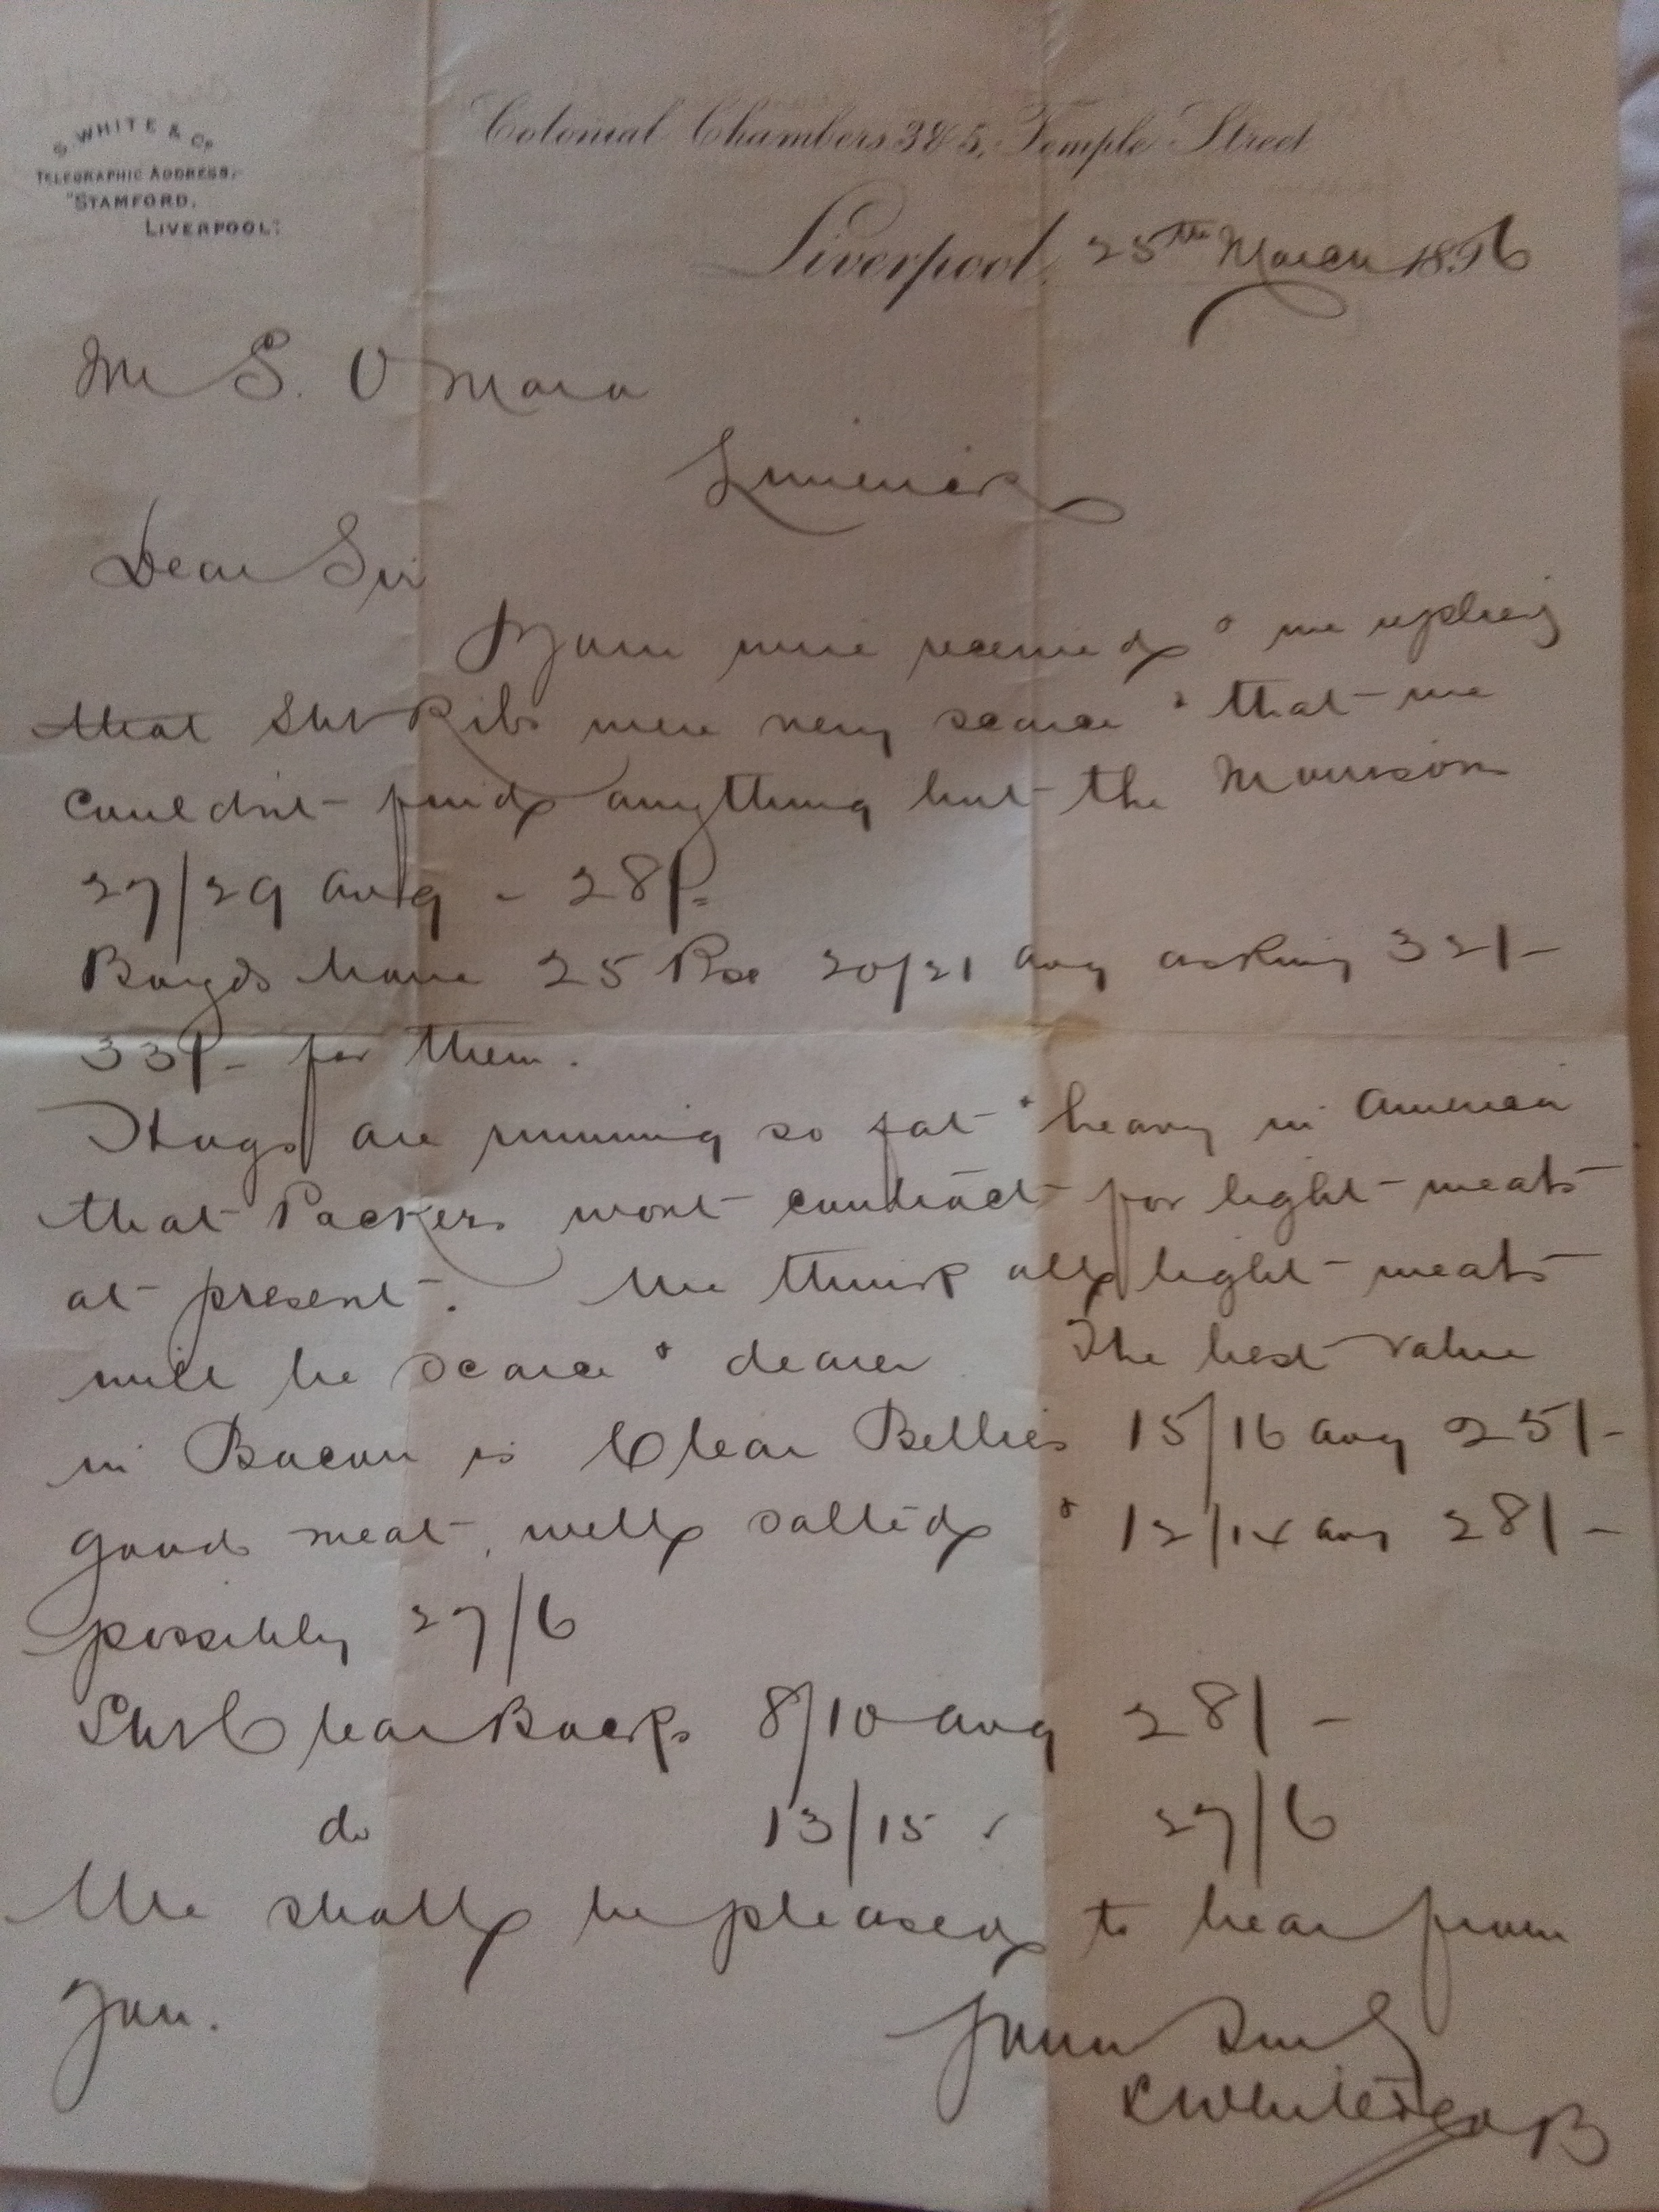 S. WHITE & Co.
TELEGRAPHIC ADDRESS,
"STAMFORD,
LIVERPOOL".
Colonial Chambers 3 & 5, Temple Street
Liverpool, 25th March 1896
Mr S. O Mara
Limerick
Dear Sir
Yours were received & we replied
that Sht Ribs were very scarce & that we
couldn't find anything but the Morrison
27/29 avg - 28/-
Boyds have 25 Bxs 20/21 avg asking 32/-
33/- for them.
Hogs are running so fat & heavy in America
that Packers wont contract for light meats
at present. We think all light meats
will be scarce & dearer The best value
in Bacon is Clear Bellies 15/16 avg 25/-
good meat, well salted & 12/14 avg 28/-
possibly 27/6
Sht Clear Backs 8/10 avg 28/-
do 13/15 " 27/6
We shall be pleased to hear from
you.
Yours truly
S White & Co
B